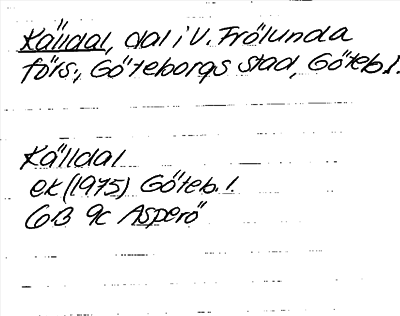 Källdal, dal i V. Frölunda
förs., Göteborgs stad, Göteb.l.
Källdal
ek (1975) Göteb. l.
6B 9c Asperö